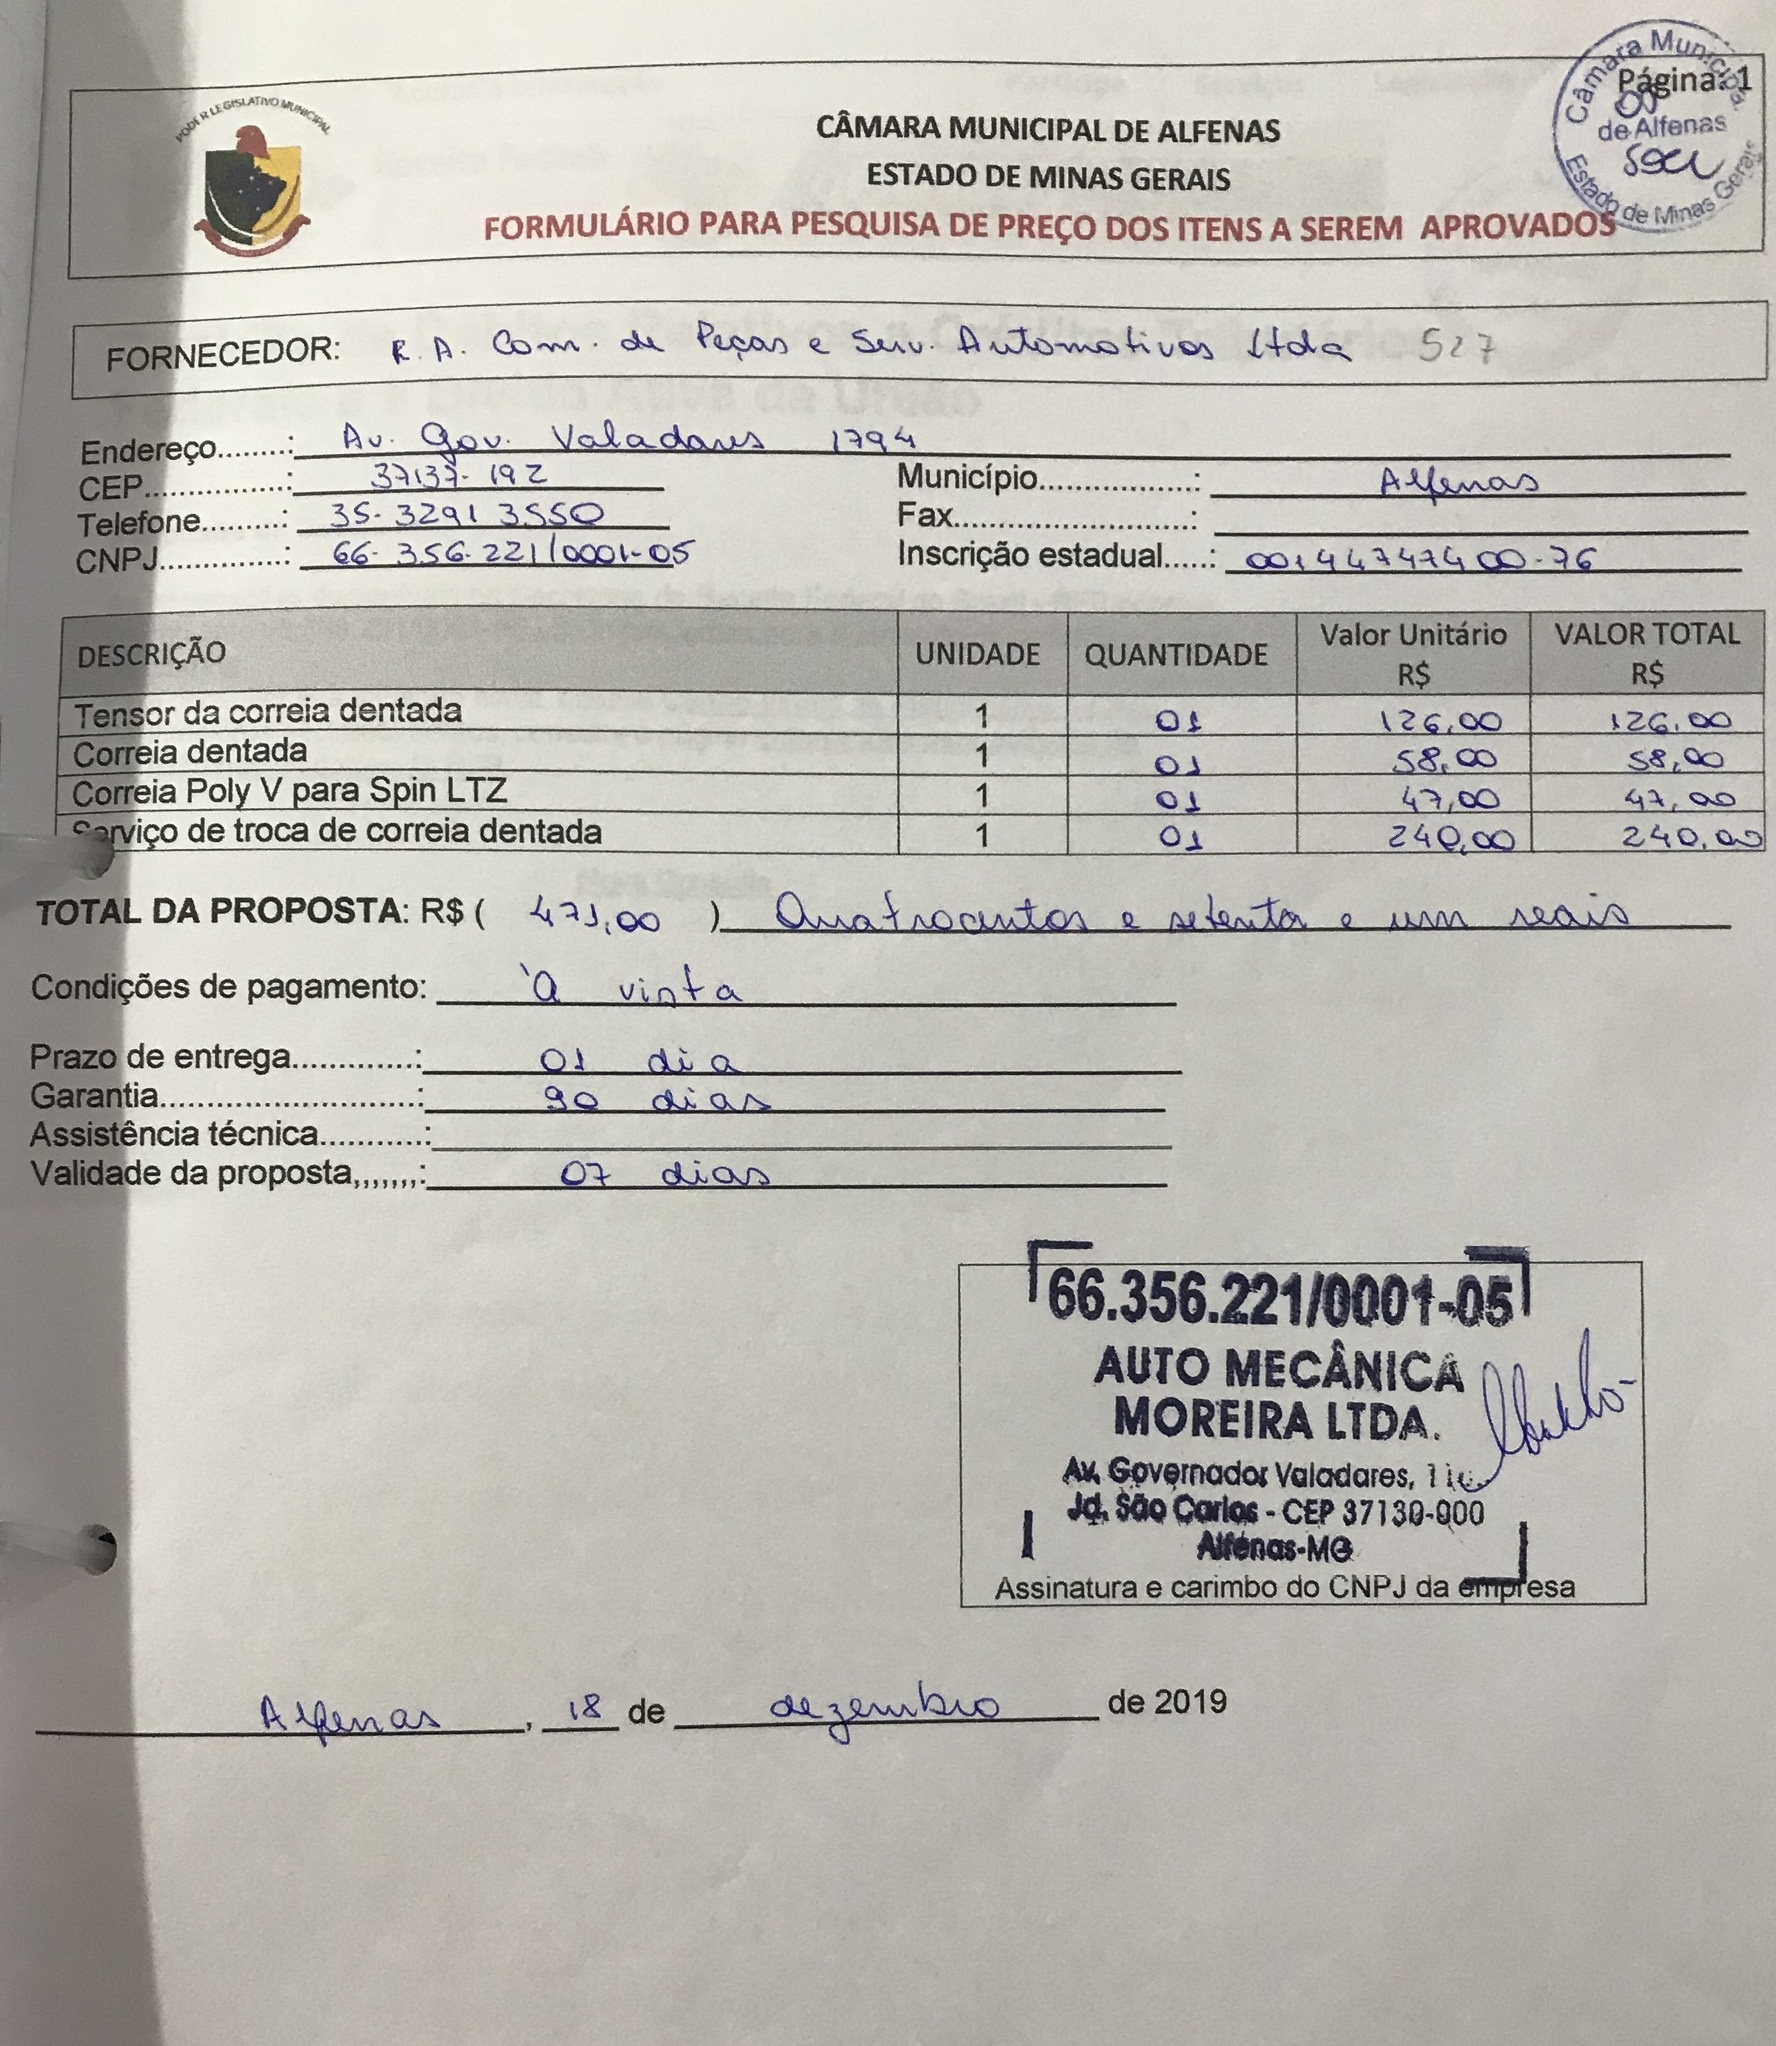 Página: 1
Câmara Municipal
de Alfenas
Estado de Minas Gerais
PODER LEGISLATIVO MUNICIPAL
CÂMARA MUNICIPAL DE ALFENAS
ESTADO DE MINAS GERAIS
FORMULÁRIO PARA PESQUISA DE PREÇO DOS ITENS A SEREM APROVADOS
FORNECEDOR: R. A. Com. de Peças e Serv. Automotivos Ltda 527
Endereço........: Av. Gov. Valadares 1794
CEP................: 37137-192 Município..................: Alfenas
Telefone.........: 35-3291 3550 Fax............................:
CNPJ..............: 66.356.221/0001-05 Inscrição estadual.....: 001447474 00-76
DESCRIÇÃO UNIDADE QUANTIDADE Valor Unitário R$ VALOR TOTAL R$
Tensor da correia dentada 1 01 126,00 126,00
Correia dentada 1 01 58,00 58,00
Correia Poly V para Spin LTZ 1 01 47,00 47,00
Serviço de troca de correia dentada 1 01 240,00 240,00
TOTAL DA PROPOSTA: R$ ( 471,00 ) Quatrocentos e setenta e um reais
Condições de pagamento: À vista
Prazo de entrega.............: 01 dia
Garantia...........................: 90 dias
Assistência técnica............:
Validade da proposta,,,,,,,: 07 dias
66.356.221/0001-05
AUTO MECÂNICA
MOREIRA LTDA.
Av. Governador Valadares,
Jd. São Carlos - CEP 37130-000
Alfenas-MG
Assinatura e carimbo do CNPJ da empresa
Alfenas, 18 de dezembro de 2019